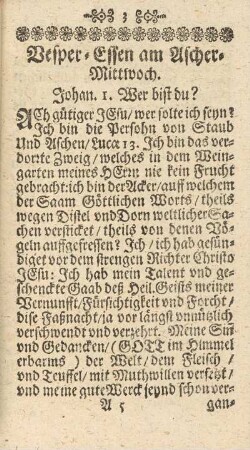 3
Vesper-Essen am Ascher-
Mittwoch.
Johan. 1. Wer bist du?
ACh gütiger JEsu/wer solte ich seyn?
Jch bin die Persohn von Staub
Und Aschen/Lucæ 13. Jch bin das ver-
dorrte Zweig/welches in dem Wein-
garten meines HErrn nie kein Frucht
gebracht: ich bin der Acker/auff welchem
der Saam Göttlichen Worts/theils
wegen Distel und Dorn weltlicher Sa-
chen versticket/theils von denen Vö-
geln auffgefressen? Jch/ich hab gesün-
diget vor dem strengen Richter Christo
JESU: Jch hab mein Talent und ge-
schenckte Gaab deß Heil. Geists meiner
Vernunfft/Fürsichtigkeit und Forcht/
dise Faßnacht/ja vor längst unnützlich
verschwendt und verzehrt. Meine Sinn
und Gedancken/(GOTT im Himmel
erbarms) der Welt/dem Fleisch/
und Teuffel/mit Muthwillen versetzt/
und meine gute Werck seynd schon ver-
A 5 gan-